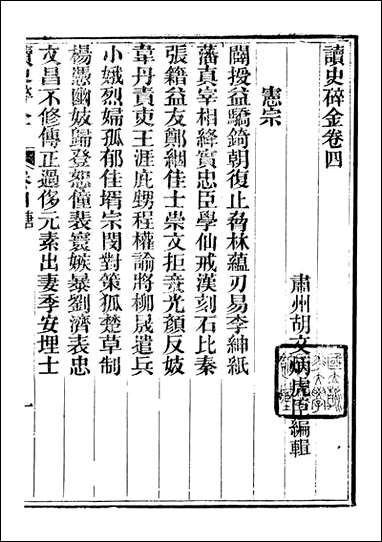 讀史碎金卷四
肅州胡文炳虎臣編輯
憲宗
闢授益驕錡朝復止脅林蘊刃易李紳紙
藩真宰相絳實忠臣學仙戒漢刻石比秦
張籍益友鄭絪佳士崇文拒妾光顏反妓
韋丹責吏王涯庇甥程權諭將柳晟遣兵
小娥烈婦孤郁佳壻宗閔對策狐楚草制
楊憑幽妓歸登恕僮裴寰嫉暴劉濟表忠
文昌不修傅正過侈元素出妻季安埋士
讀史碎金
卷四 唐
一